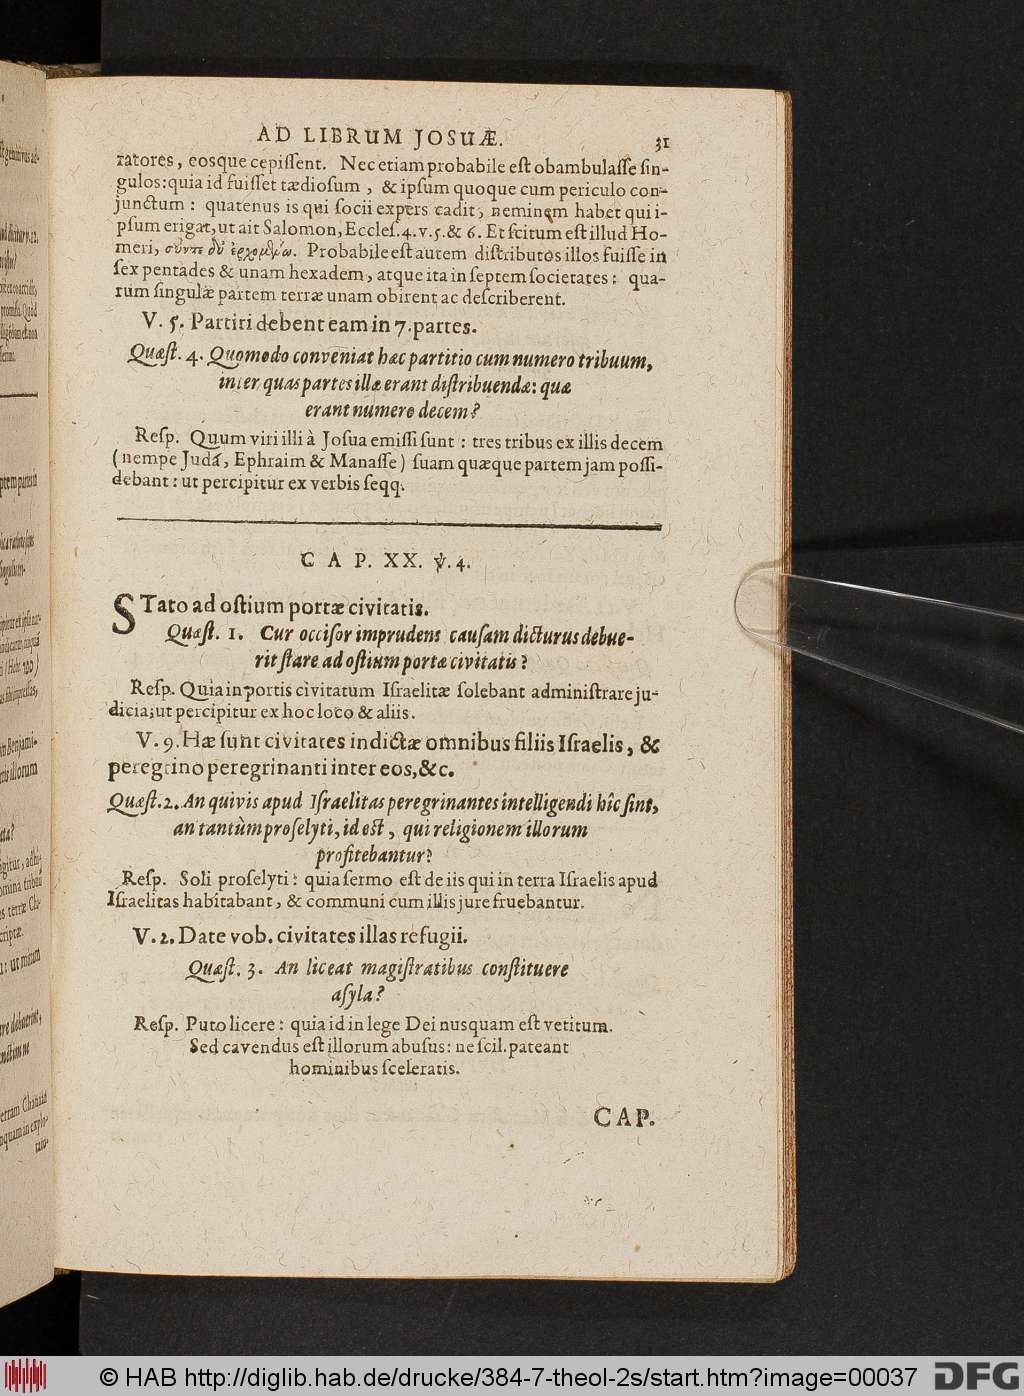 AD LIBRUM JOSUÆ. 31
ratores, eosque cepiſſent. Nec etiam probabile eſt obambulaſſe ſin-
gulos: quia id fuiſſet tædioſum, & ipſum quoque cum periculo con-
junctum: quatenus is qui ſocii expers cadit, neminem habet qui i-
pſum erigat, ut ait Salomon, Eccleſ. 4. v. 5. & 6. Et ſcitum eſt illud Ho-
meri, σύντε δύ ἐρχομένω. Probabile eſt autem diſtributos illos fuiſſe in
ſex pentades & unam hexadem, atque ita in ſeptem ſocietates: qua-
rum ſingulæ partem terræ unam obirent ac deſcriberent.
V. 5. Partiri debent eam in 7. partes.
Quæſt. 4. Quomodo conveniat hæc partitio cum numero tribuum,
inter quas partes illæ erant diſtribuendæ: quæ
erant numero decem?
Reſp. Quum viri illi à Joſua emiſſi ſunt: tres tribus ex illis decem
(nempe Judá, Ephraim & Manaſſe) ſuam quæque partem jam poſſi-
debant: ut percipitur ex verbis ſeqq.
CAP. XX. v. 4.
STato ad oſtium portæ civitatis.
Quæſt. 1. Cur occiſor imprudens cauſam dicturus debue-
rit ſtare ad oſtium portæ civitatis?
Reſp. Quia in portis civitatum Iſraelitæ ſolebant adminiſtrare ju-
dicia; ut percipitur ex hoc loco & aliis.
V. 9. Hæ ſunt civitates indictæ omnibus filiis Iſraelis, &
peregrino peregrinanti inter eos, &c.
Quæſt. 2. An quivis apud Iſraelitas peregrinantes intelligendi hîc ſint,
an tantùm proſelyti, id eſt, qui religionem illorum
profitebantur?
Reſp. Soli proſelyti: quia ſermo eſt de iis qui in terra Iſraelis apud
Iſraelitas habitabant, & communi cum illis jure fruebantur.
V. 2. Date vob. civitates illas refugii.
Quæſt. 3. An liceat magiſtratibus conſtituere
aſyla?
Reſp. Puto licere: quia id in lege Dei nusquam eſt vetitum.
Sed cavendus eſt illorum abuſus: ne ſcil. pateant
hominibus ſceleratis.
CAP.
© HAB http://diglib.hab.de/drucke/384-7-theol-2s/start.htm?image=00037 DFG